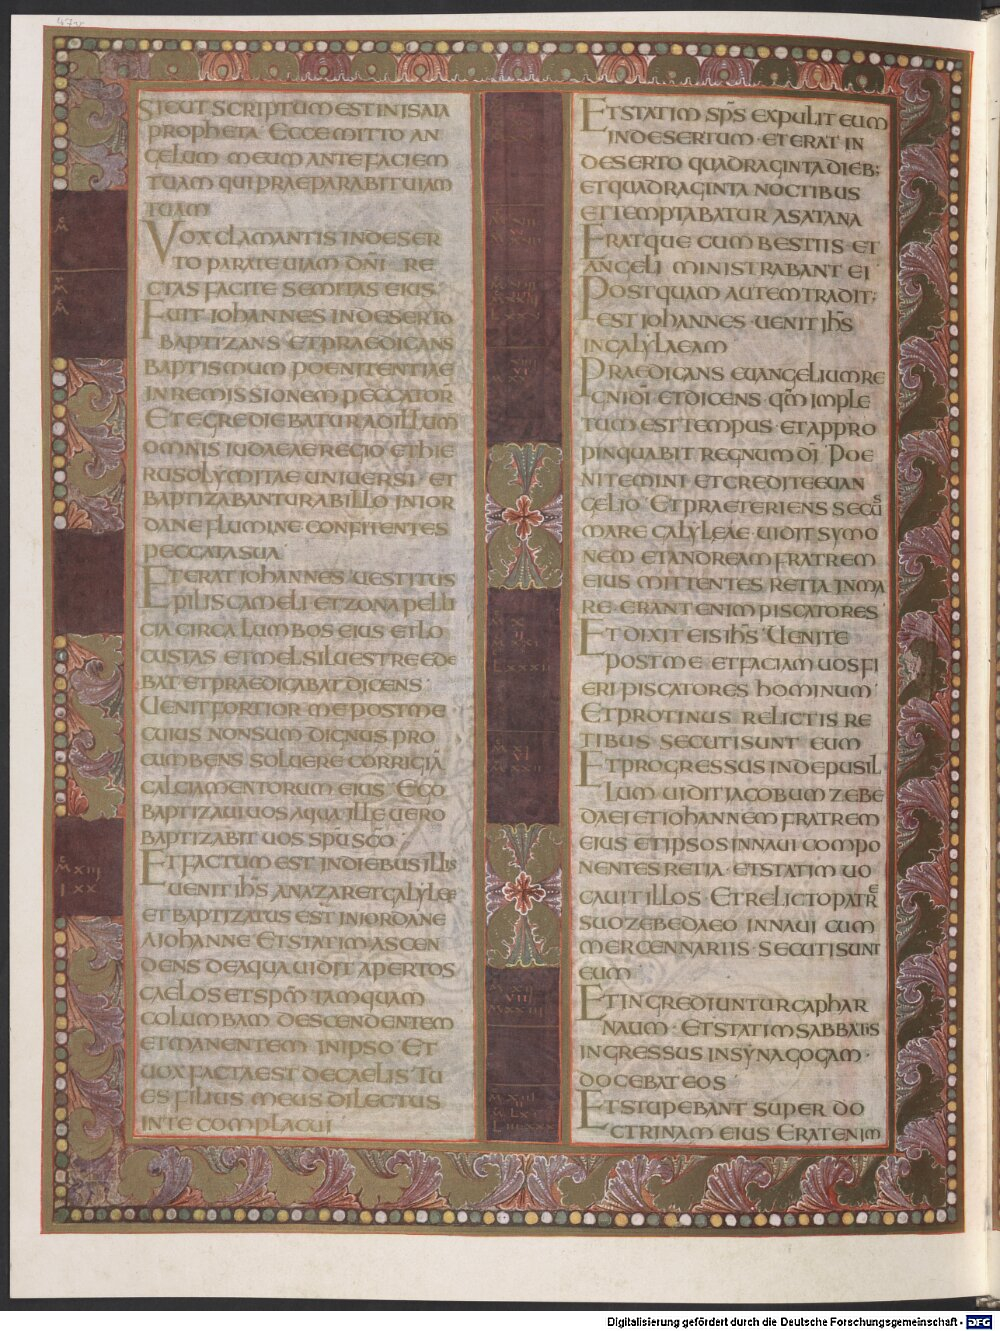 47v
SICUT SCRIPTUM EST IN ISAIA
PROPHETA· ECCE MITTO AN
GELUM MEUM ANTE FACIEM
TUAM QUI PRAEPARABIT UIAM
TUAM
VOX CLAMANTIS IN DESER
TO PARATE UIAM DN̄I RE
CTAS FACITE SEMITAS EIUS·
FUIT IOHANNES IN DESERTO
BAPTIZANS· ET PRAEDICANS
BAPTISMUM POENITENTIAE
IN REMISSIONEM PECCATOR̄
ET EGREDIEBATUR AD ILLUM
OMNIS IUDAEAE REGIO ET HIE
RUSOLYMITAE UNIUERSI· ET
BAPTIZABANTUR AB ILLO IN IOR
DANE FLUMINE CONFITENTES
PECCATA SUA·
ET ERAT IOHANNES UESTITUS
PILIS CAMELI ET ZONA PELLI
CIA CIRCA LUMBOS EIUS ET LO
CUSTAS ET MEL SILUESTRE EDE
BAT· ET PRAEDICABAT DICENS·
UENIT FORTIOR ME POST ME·
CUIUS NON SUM DIGNUS PRO
CUMBENS SOLUERE CORRIGIĀ
CALCIAMENTORUM EIUS· EGO
BAPTIZAUI UOS AQUA ILLE UERO
BAPTIZABIT UOS SPŪ SC̄O·
ET FACTUM EST IN DIEBUS ILLIS
UENIT IH̄S A NAZARET GALYLEĘ
ET BAPTIZATUS EST IN IORDANE
A IOHANNE· ET STATIM ASCEN
DENS DE AQUA UIDIT APERTOS
CAELOS ET SPM̄ TAMQUAM
COLUMBAM DESCENDENTEM
ET MANENTEM IN IPSO· ET
UOX FACTA EST DE CAELIS· TU
ES FILIUS MEUS DILECTUS
IN TE COMPLACUI
ET STATIM SPS̄ EXPULIT EUM
IN DESERTUM· ET ERAT IN
DESERTO QUADRAGINTA DIEB;
ET QUADRAGINTA NOCTIBUS
ET TEMPTABATUR A SATANA
ERATQUE CUM BESTIIS· ET
ANGELI MINISTRABANT EI·
POSTQUAM AUTEM TRADIT;
EST IOHANNES· UENIT IH̄S
IN GALYLAEAM
PRAEDICANS EUANGELIUM RE
GNI DĪ ET DICENS· QM̄ IMPLE
TUM EST TEMPUS· ET APPRO
PINQUABIT REGNUM DĪ· POE
NITEMINI· ET CREDITE EUAN
GELIO· ET PRAETERIENS SECUS
MARE GALYLEAE· UIDIT SYMO
NEM ET ANDREAM FRATREM
EIUS MITTENTES RETIA IN MA
RE· ERANT ENIM PISCATORES·
ET DIXIT EIS IH̄S· UENITE
POST ME· ET FACIAM UOS FI
ERI PISCATORES HOMINUM·
ET PROTINUS RELICTIS RE
TIBUS· SECUTI SUNT EUM
ET PROGRESSUS INDE PUSIL
LUM UIDIT IACOBUM ZEBE
DAEI ET IOHANNEM FRATREM
EIUS ET IPSOS IN NAUI COMPO
NENTES RETIA· ET STATIM UO
CAUIT ILLOS· ET RELICTO PATRE
SUO ZEBEDAEO IN NAUI CUM
MERCENNARIIS· SECUTI SUNT
EUM·
ET INGREDIUNTUR CAPHAR
NAUM· ET STATIM SABBATIS
INGRESSUS IN SYNAGOGAM·
DOCEBAT EOS
ET STUPEBANT SUPER DO
CTRINAM EIUS· ERAT ENIM
Digitalisierung gefördert durch die Deutsche Forschungsgemeinschaft - DFG